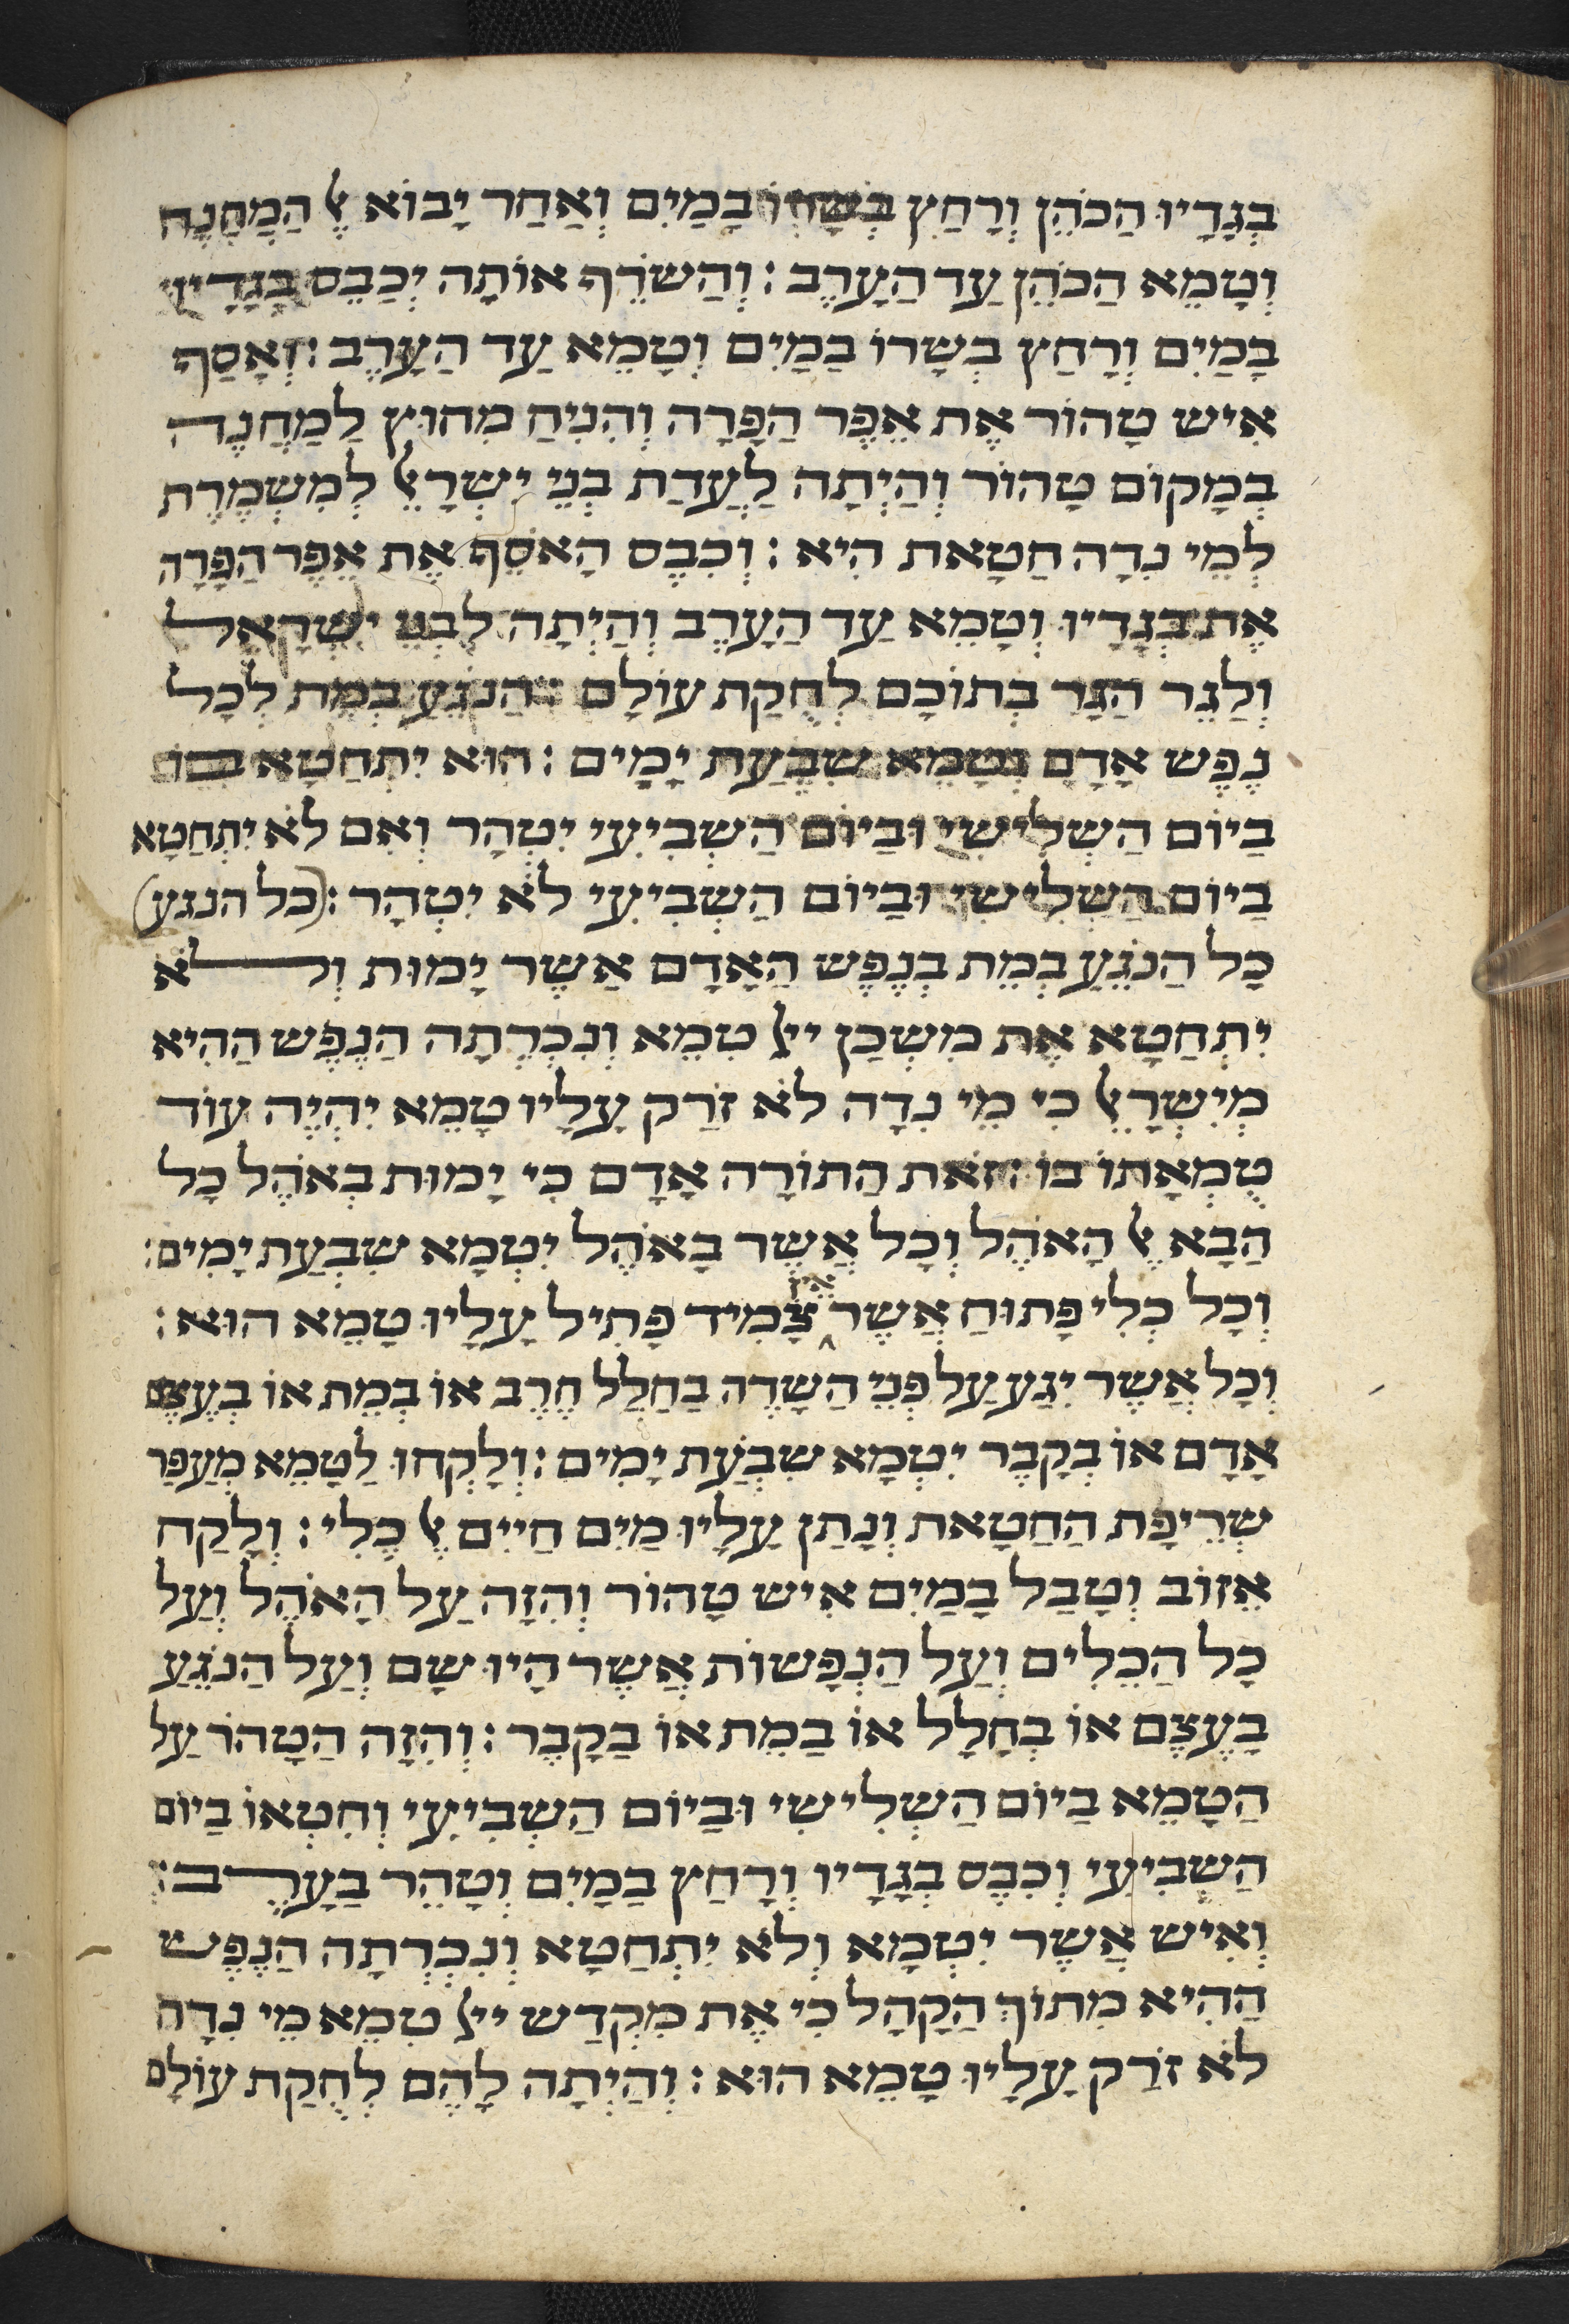 בְּגָדָיו הַכֹּהֵן וְרָחַץ בְּשָׂרוֹ בַּמַיִם וְאַחַר יָבוֹא אֶל הַמַחֲנֶה
וְטָמֵא הַכֹּהֵן עַד הָעָרֶב : וְהַשׂרֵף אוֹתָהּ יְכַבֵּס בְּגָדָיו
בַּמַיִם וְרָחַץ בְּשָׂרוֹ בַּמַיִם וְטָמֵא עַד הָעָרֶב : וְאָסַף
אִישׁ טָהוֹר אֶת אֵפֶר הַפָּרָה וְהִנִיחַ מִחוּץ לַמַחֲנֶה
בְּמָקוֹם טָהוֹר וְהָיְתָה לַעֲדַת בְּנֵי יִשְׂרָאֵל לְמִשְׁמֶרֶת
לְמֵי נִדָה חַטָאת הִיא : וְכִבֶּס הָאֹסֵף אֶת אֵפֶר הַפָּרָה
אֶת בְּגָדָיו וְטָמֵא עַד הָעָרֶב וְהָיְתָה לִבְנֵי יִשְׂרָאֵל
וְלַגֵר הַגָר בְּתוֹכָם לְחֻקַת עוֹלָם : הַנֹגֵעַ בְּמֵת לְכָל
נֶפֶשׁ אָדָם וְטָמֵא שִׁבְעַת יָמִים : הוּא יִתְחַטָא בוֹ
בַּיוֹם הַשְׁלִישִׁי וּבַיוֹם הַשְׁבִיעִי יִטְהָר וְאִם לֹא יִתְחַטָא
בַּיוֹם הַשְׁלִישִׁי וּבַיוֹם הַשְׁבִיעִי לֹא יִטְהָר : (כל הנגע)
כָּל הַנֹגֵעַ בְּמֵת בְּנֶפֶשׁ הָאָדָם אֲשֶׁר יָמוּת וְלֹא
יִתְחַטָא אֶת מִשְׁכַּן ייי טִמֵא וְנִכְרְתָה הַנֶפֶשׁ הַהִיא
מִיִשְׂרָאֵל כִּי מֵי נִדָה לֹא זֹרַק עָלָיו טָמֵא יִהְיֶה עוֹד
טֻמְאָתוֹ בוֹ : זֹאת הַתוֹרָה אָדָם כִּי יָמוּת בְּאֹהֶל כָּל
הַבָּא אֶל הָאֹהֶל וְכָל אֲשֶׁר בָּאֹהֶל יִטְמָא שִׁבְעַת יָמִים :
וְכָל כְּלִי פָתוּחַ אֲשֶׁר אֵין צָמִיד פָּתִיל עָלָיו טָמֵא הוּא :
וְכָל אֲשֶׁר יִגַע עַל פְּנֵי הַשָׂדֶה בַּחֲלַל חֶרֶב אוֹ בְמֵת אוֹ בְעֶצֶם
אָדָם אוֹ בְקָבֶר יִטְמָא שִׁבְעַת יָמִים : וְלָקְחוּ לַטָמֵא מֵעֲפַר
שְׂרֵיפַת הַחַטָאת וְנָתַן עָלָיו מַיִם חַיִים אֶל כֶּלִי : וְלָקַח
אֵזוֹב וְטָבַל בַּמַיִם אִישׁ טָהוֹר וְהִזָה עַל הָאֹהֶל וְעַל
כָּל הַכֵּלִים וְעַל הַנְפָשׁוֹת אֲשֶׁר הָיוּ שָׁם וְעַל הַנֹגֵעַ
בַּעֶצֶם אוֹ בְחָלָל אוֹ בַמֵת אוֹ בַקָבֶר : וְהִזָה הַטָהֹר עַל
הַטָמֵא בַּיוֹם הַשְׁלִישִׁי וּבַיוֹם הַשְׁבִיעִי וְחִטְאוֹ בַּיוֹם
הַשְׁבִיעִי וְכִבֶּס בְּגָדָיו וְרָחַץ בַּמַיִם וְטָהֵר בָּעָרֶב :
וְאִישׁ אֲשֶׁר יִטְמָא וְלֹא יִתְחַטָא וְנִכְרְתָה הַנֶפֶשׁ
הַהִיא מִתוֹךְ הַקָהָל כִּי אֶת מִקְדַשׁ ייי טִמֵא מֵי נִדָה
לֹא זֹרַק עָלָיו טָמֵא הוּא : וְהָיְתָה לָהֶם לְחֻקַת עוֹלָם